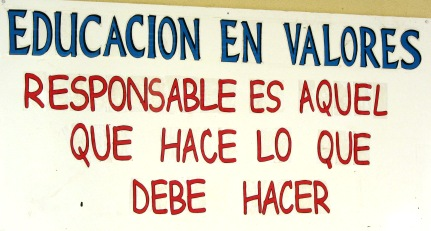 EDUCACION EN VALORES
RESPONSABLE ES AQUEL
QUE HACE LO QUE
DEBE HACER